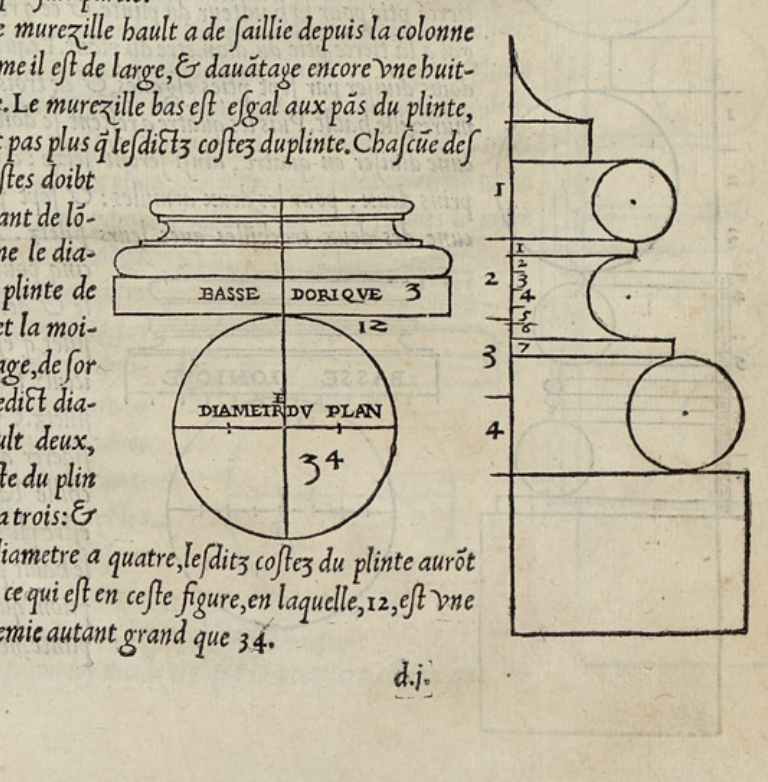 e murezille hault a de ſaillie depuis la colonne
me il eſt de large, & dauãtage encore vne huit-
e. Le murezille bas eſt eſgal aux pãs du plinte,
t pas plus q̃ leſdictz coſtez du plinte. Chaſcũe deſ
ſtes doibt
ant de lõ-
ne le dia-
plinte de
et la moi-
age, de ſor
edict dia-
ult deux,
te du plin
a trois: &
diametre a quatre, leſditz coſtez du plinte aurõt
ce qui eſt en ceſte figure, en laquelle, 12, eſt vne
emie autant grand que 34.
d.j.
BASSE DORIQVE 3
12
DIAMETRE DV PLAN
34
1
2
3
4
1
2
3
4
5
6
7